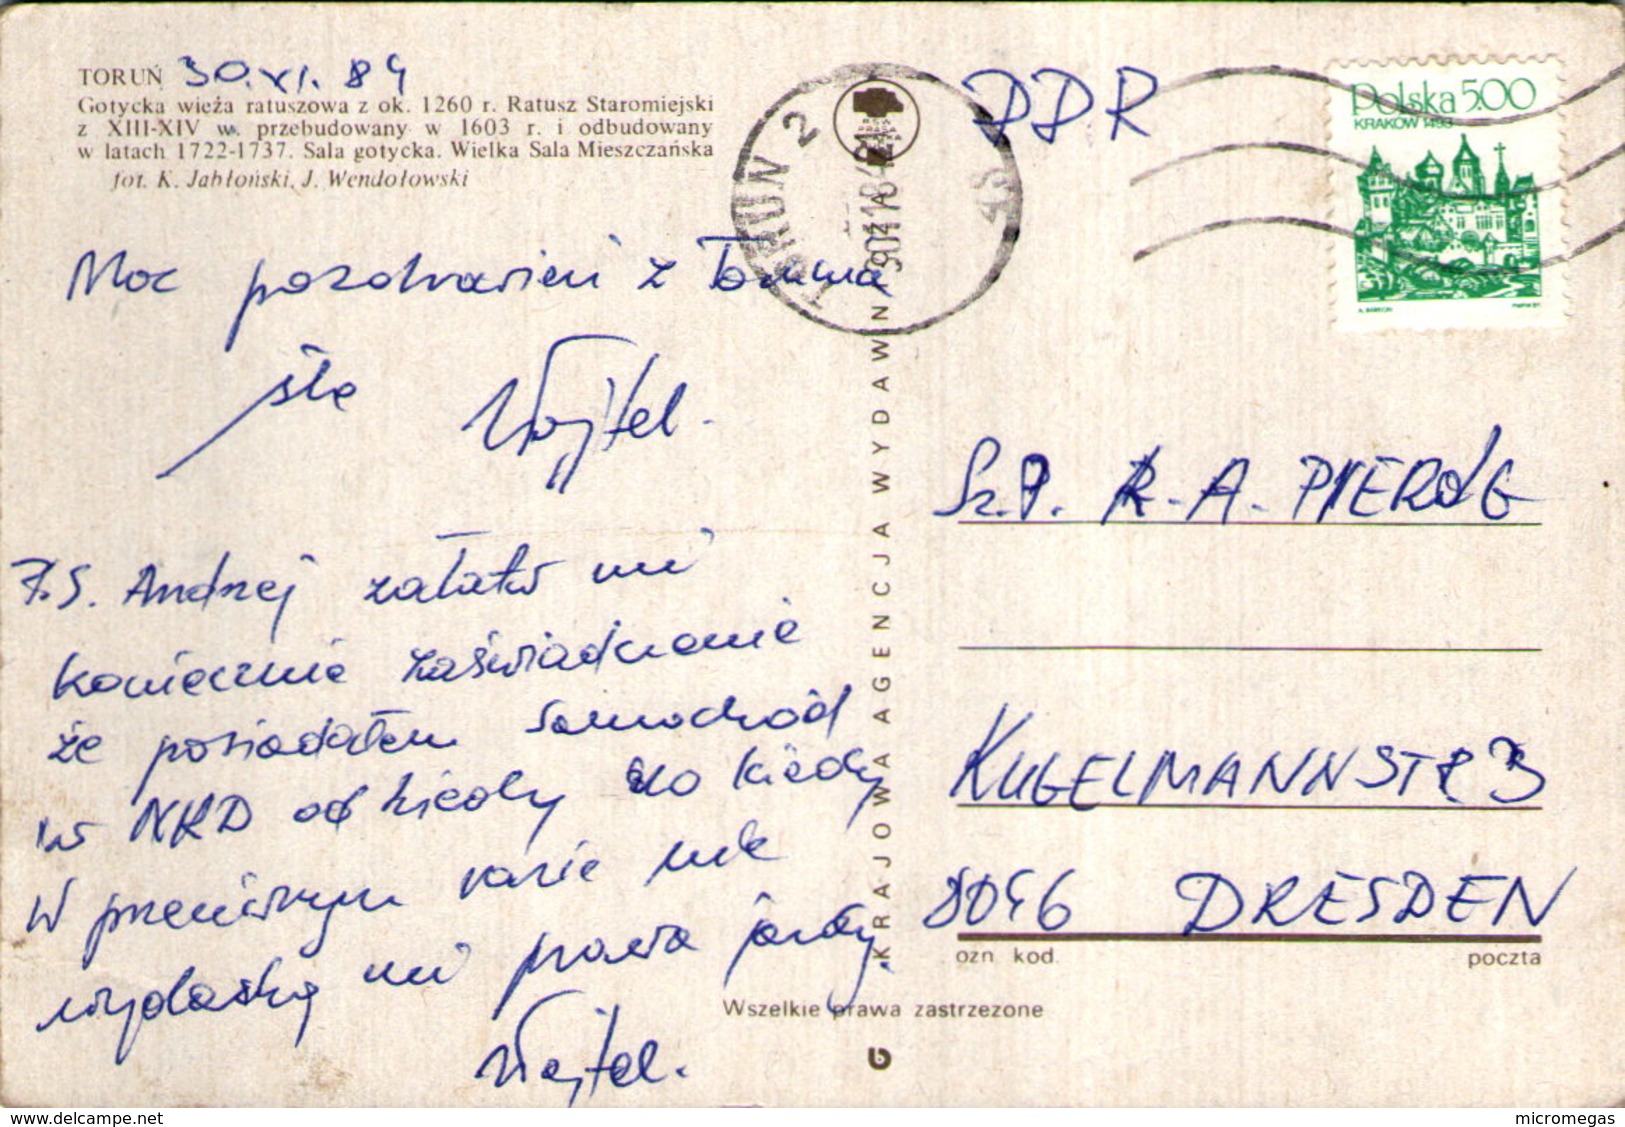 TORUŃ 30.XI.84
Gotycka wieża ratuszowa z ok. 1260 r. Ratusz Staromiejski
z XIII-XIV w. przebudowany w 1603 r. i odbudowany
w latach 1722-1737. Sala gotycka. Wielka Sala Mieszczańska
fot. K. Jabłoński, J. Wendołowski
Moc pozdrowień z Torunia
śle Wojtek.
P.S. Andrzej załatw mi
koniecznie zaświadczenie
że posiadałem samochód
w NRD od kiedy do kiedy
W przeciwnym razie nie
wydadzą mi prawa jazdy.
Wojtek.
TORUŃ 2
KRAJOWA AGENCJA WYDAWN
Wszelkie prawa zastrzeżone
DDR
Polska 5.00
KRAKÓW 1493
Sz.P. R. A. PIERÓG
KUGELMANNSTR. 3
8046 DRESDEN
ozn kod.
poczta
delcampe.net
micromegas